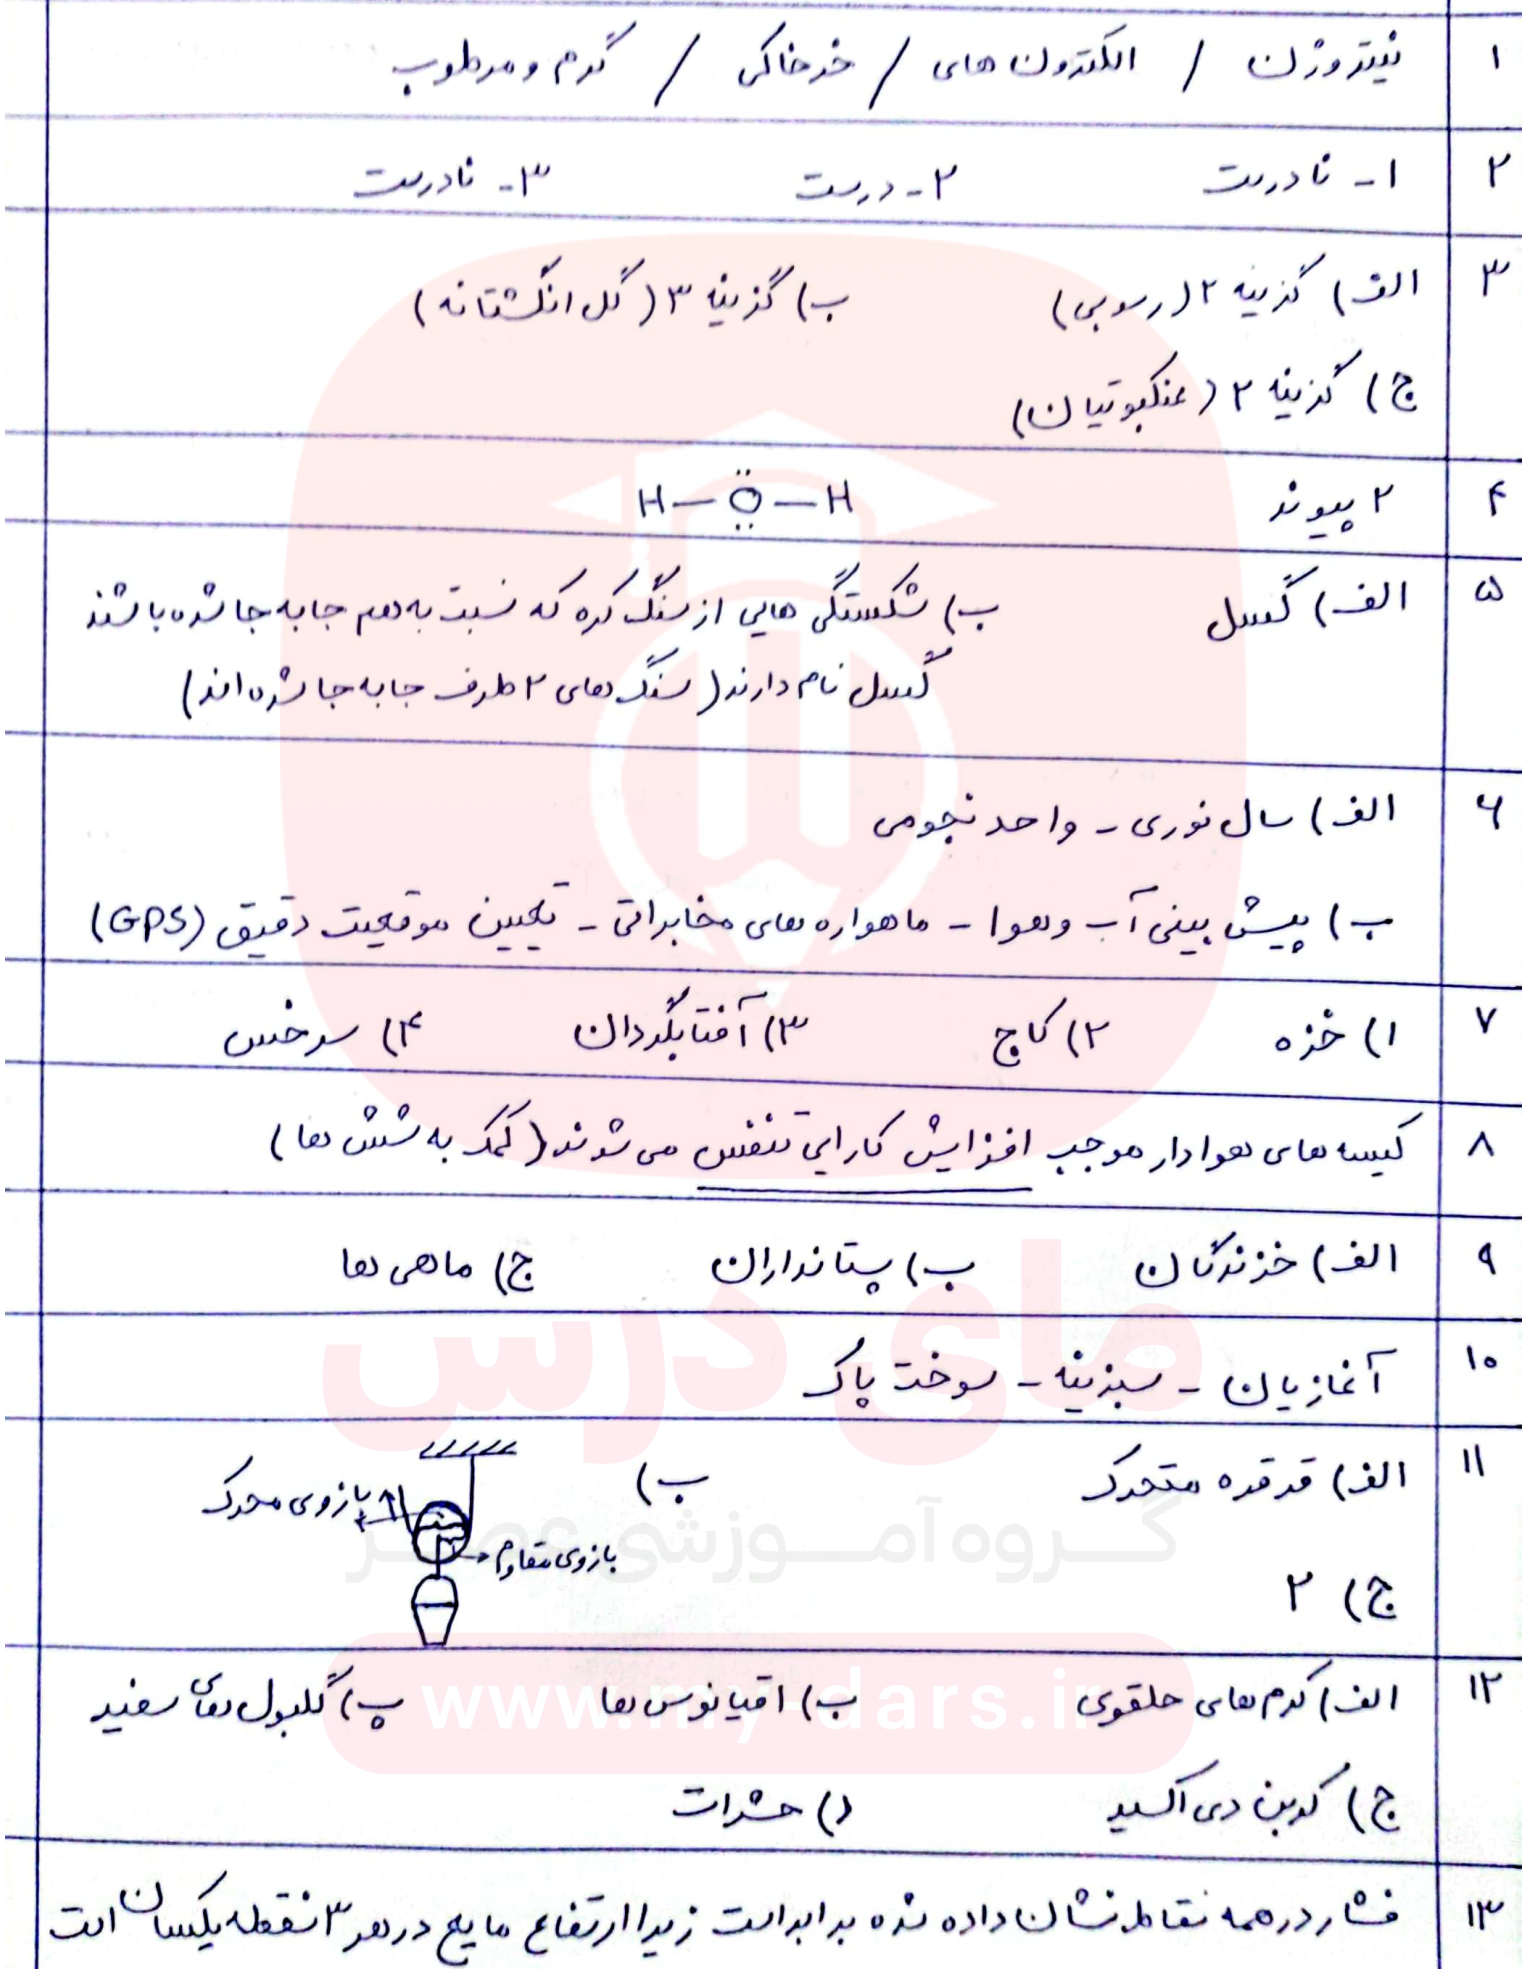 ۱ نیتروژن / الکترون های / خرخاکی / گرم و مرطوب
۲ ۱- نادرست ۲- درست ۳- نادرست
۳ الف) گزینه ۲ (رسوبی) ب) گزینه ۳ (گل انگشتانه)
ج) گزینه ۲ (عنکبوتیان)
۴ ۲ پیوند H–Ö–H
۵ الف) گسل ب) شکستگی هایی از سنگ کره که نسبت به هم جابه جا شده باشند
گسل نام دارند (سنگ های ۲ طرف جابه جا شده اند)
۶ الف) سال نوری - واحد نجومی
ب) پیش بینی آب و هوا - ماهواره های مخابراتی - تعیین موقعیت دقیق (GPS)
۷ ۱) خزه ۲) کاج ۳) آفتابگردان ۴) سرخس
۸ کیسه های هوادار موجب افزایش کارایی تنفس می شوند (کمک به شش ها)
۹ الف) خزندگان ب) پستانداران ج) ماهی ها
مای درس
۱۰ آغازیان - سبزینه - سوخت پاک
۱۱ الف) قرقره متحرک ب)
بازوی محرک
بازوی مقاوم
گروه آموزشی عصر
ج) ۲
۱۲ الف) کرم های حلقوی ب) اقیانوس ها پ) گلبول های سفید
www.my-dars.ir
ج) کربن دی اکسید د) حشرات
۱۳ فشار در همه نقاط نشان داده شده برابر است زیرا ارتفاع مایع در هر ۳ نقطه یکسان است